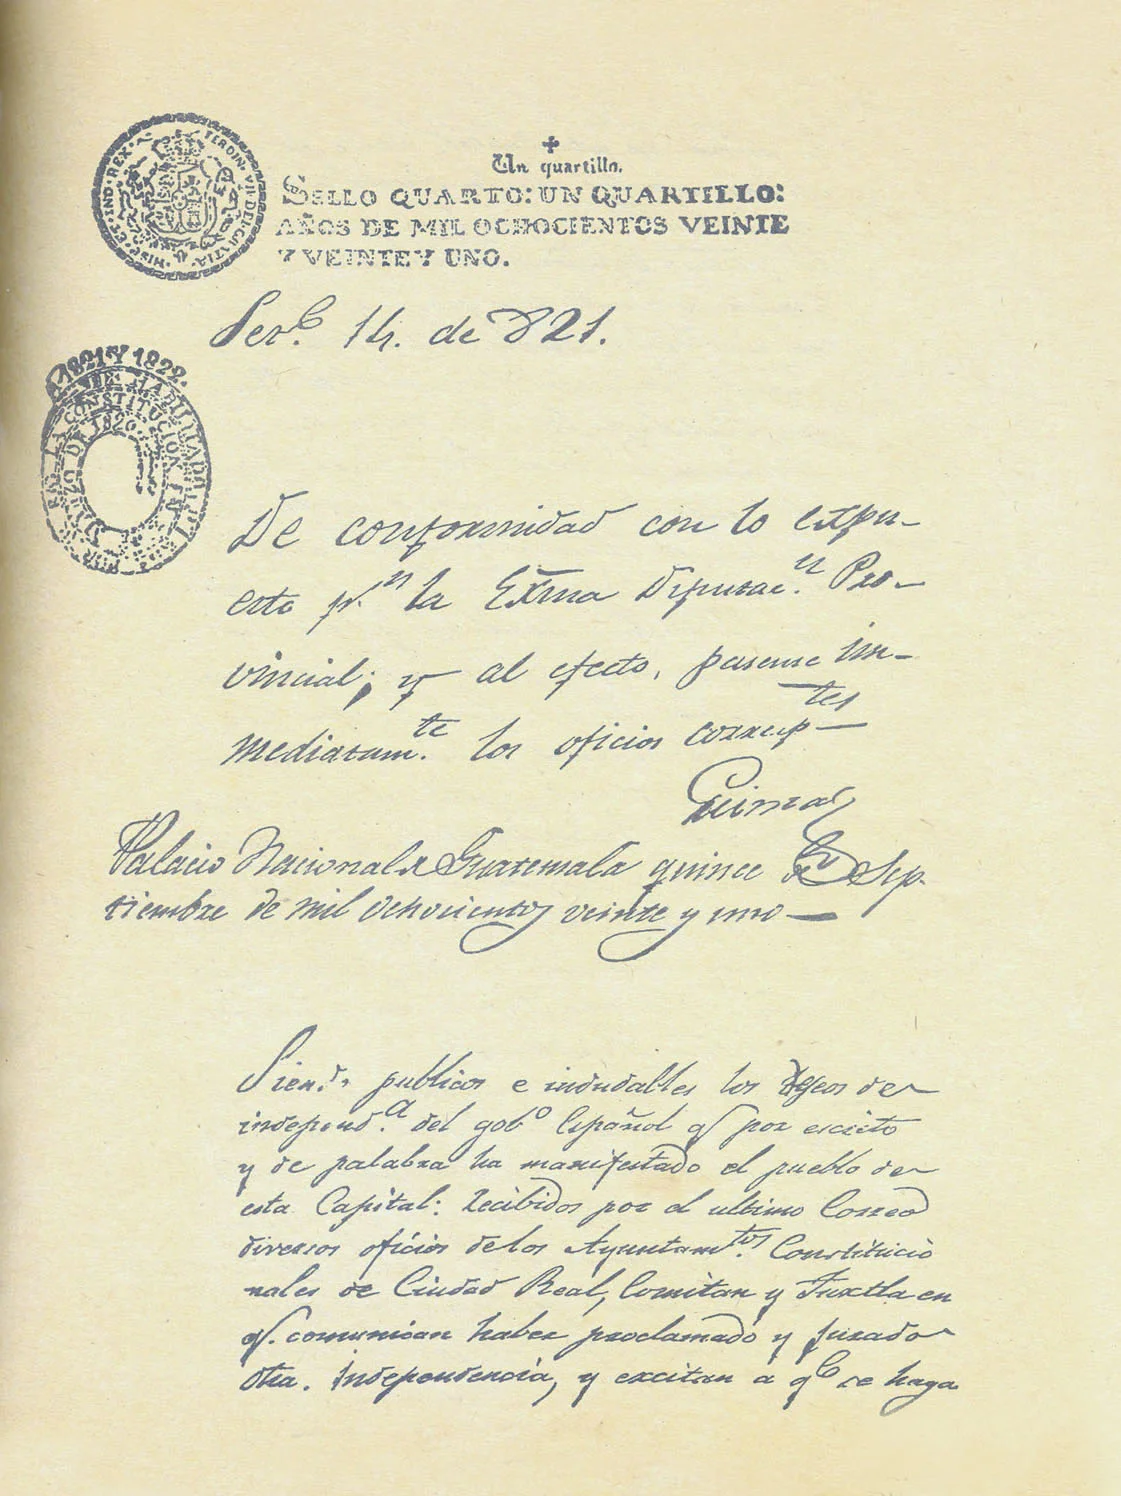 Un quartillo.
SELLO QUARTO: UN QUARTILLO:
AÑOS DE MIL OCHOCIENTOS VEINTE
Y VEINTE Y UNO.
FERDIN. VII. DEI. GRATIA. HISP. ET. IND. REX.
14. de 821.
1821 Y 1822.
HABILITADO
LA CONSTITUCION
DE 1820.
De conformidad con lo expu-
esto p.r la Exma Diputac.n Pro-
vincial; y al efecto, pasense in-
mediatam.te los oficios corresp.tes
Palacio Nacional de Guatemala quince de Sep-
tiembre de mil ochocientos veinte y uno
Siendo publicos e indudables los deseos de
independ.a del gob.o Español q. por escrito
y de palabra ha manifestado el pueblo de
esta Capital: recibidos por el ultimo Correo
diversos oficios de los Ayuntam.tos Constitucio
nales de Ciudad Real, Comitan y Tuxtla en
q. comunican haber proclamado y jurado
dha. independencia, y excitan a q.e se haga